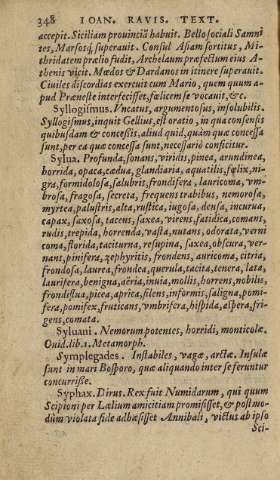 348 IOAN. RAVIS. TEXT.
accepit. Siciliam prouinciã habuit. Bello sociali Samni
tes, Marsosq; superauit. Consul Asiam sortitus, Mi-
thridatem prælio fudit, Archelaum præfectum eius A-
thenis vicit. Mœdos & Dardanos in itinere superauit.
Ciuiles discordias exercuit cum Mario, quem quum a-
pud Præneste interfecisset, fœlicem se vocauit, &c.
Syllogismus. Vncatus, argumentosus, insolubilis.
Syllogismus, inquit Gellius, est oratio, in qua consensis
quibusdam & concessis, aliud quid, quàm quæ concessa
sunt, per ea quæ concessa sunt, necessariò conficitur.
Sylua. Profunda, sonans, viridis, pinea, arundinea,
horrida, opaca, cædua, glandiaria, aquatilis, fœlix, ni-
gra, formidolosa, salubris, frondifera, lauricoma, vm-
brosa, fragosa, secreta, frequens trabibus, nemorosa,
myrtea, palustris, alta, rustica, iugosa, densa, incurua,
capax, saxosa, tacens, saxea, virens, fatidica, comans,
rudis, trepida, horrenda, vasta, nutans, odorata, verni
coma, florida, taciturna, resupina, saxea, obscura, ver-
nans, pinifera, zephyritis, frondens, auricoma, citria,
frondosa, laurea, frondea, querula, tacita, tenera, lata,
laurifera, benigna, aëria, inuia, mollis, horrens, nobilis,
frondiflua, picea, aprica, silens, informis, saligna, pomi-
fera, pomifex, fruticans, vmbrifera, hispida, aspera, fri-
gens, comata.
Syluani. Nemorum potentes, horridi, monticolæ.
Ouid. lib. 1. Metamorph.
Symplegades. Instabiles, vagæ, arctæ. Insulæ
sunt in mari Bosporo, quæ aliquando inter se feruntur
concurrisse.
Syphax. Dirus. Rex fuit Numidarum, qui quum
Scipioni per Lælium amicitiam promisisset, & postmo-
dùm violata fide adhæsisset Annibali, victus ab ipso
Sci-